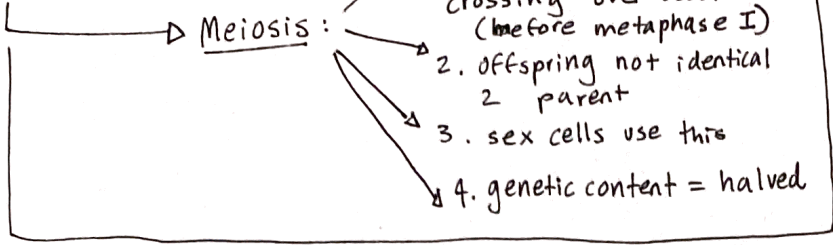 crossing over
(before metaphase I)
Meiosis :
2. offspring not identical
2 parent
3. sex cells use this
4. genetic content = halved